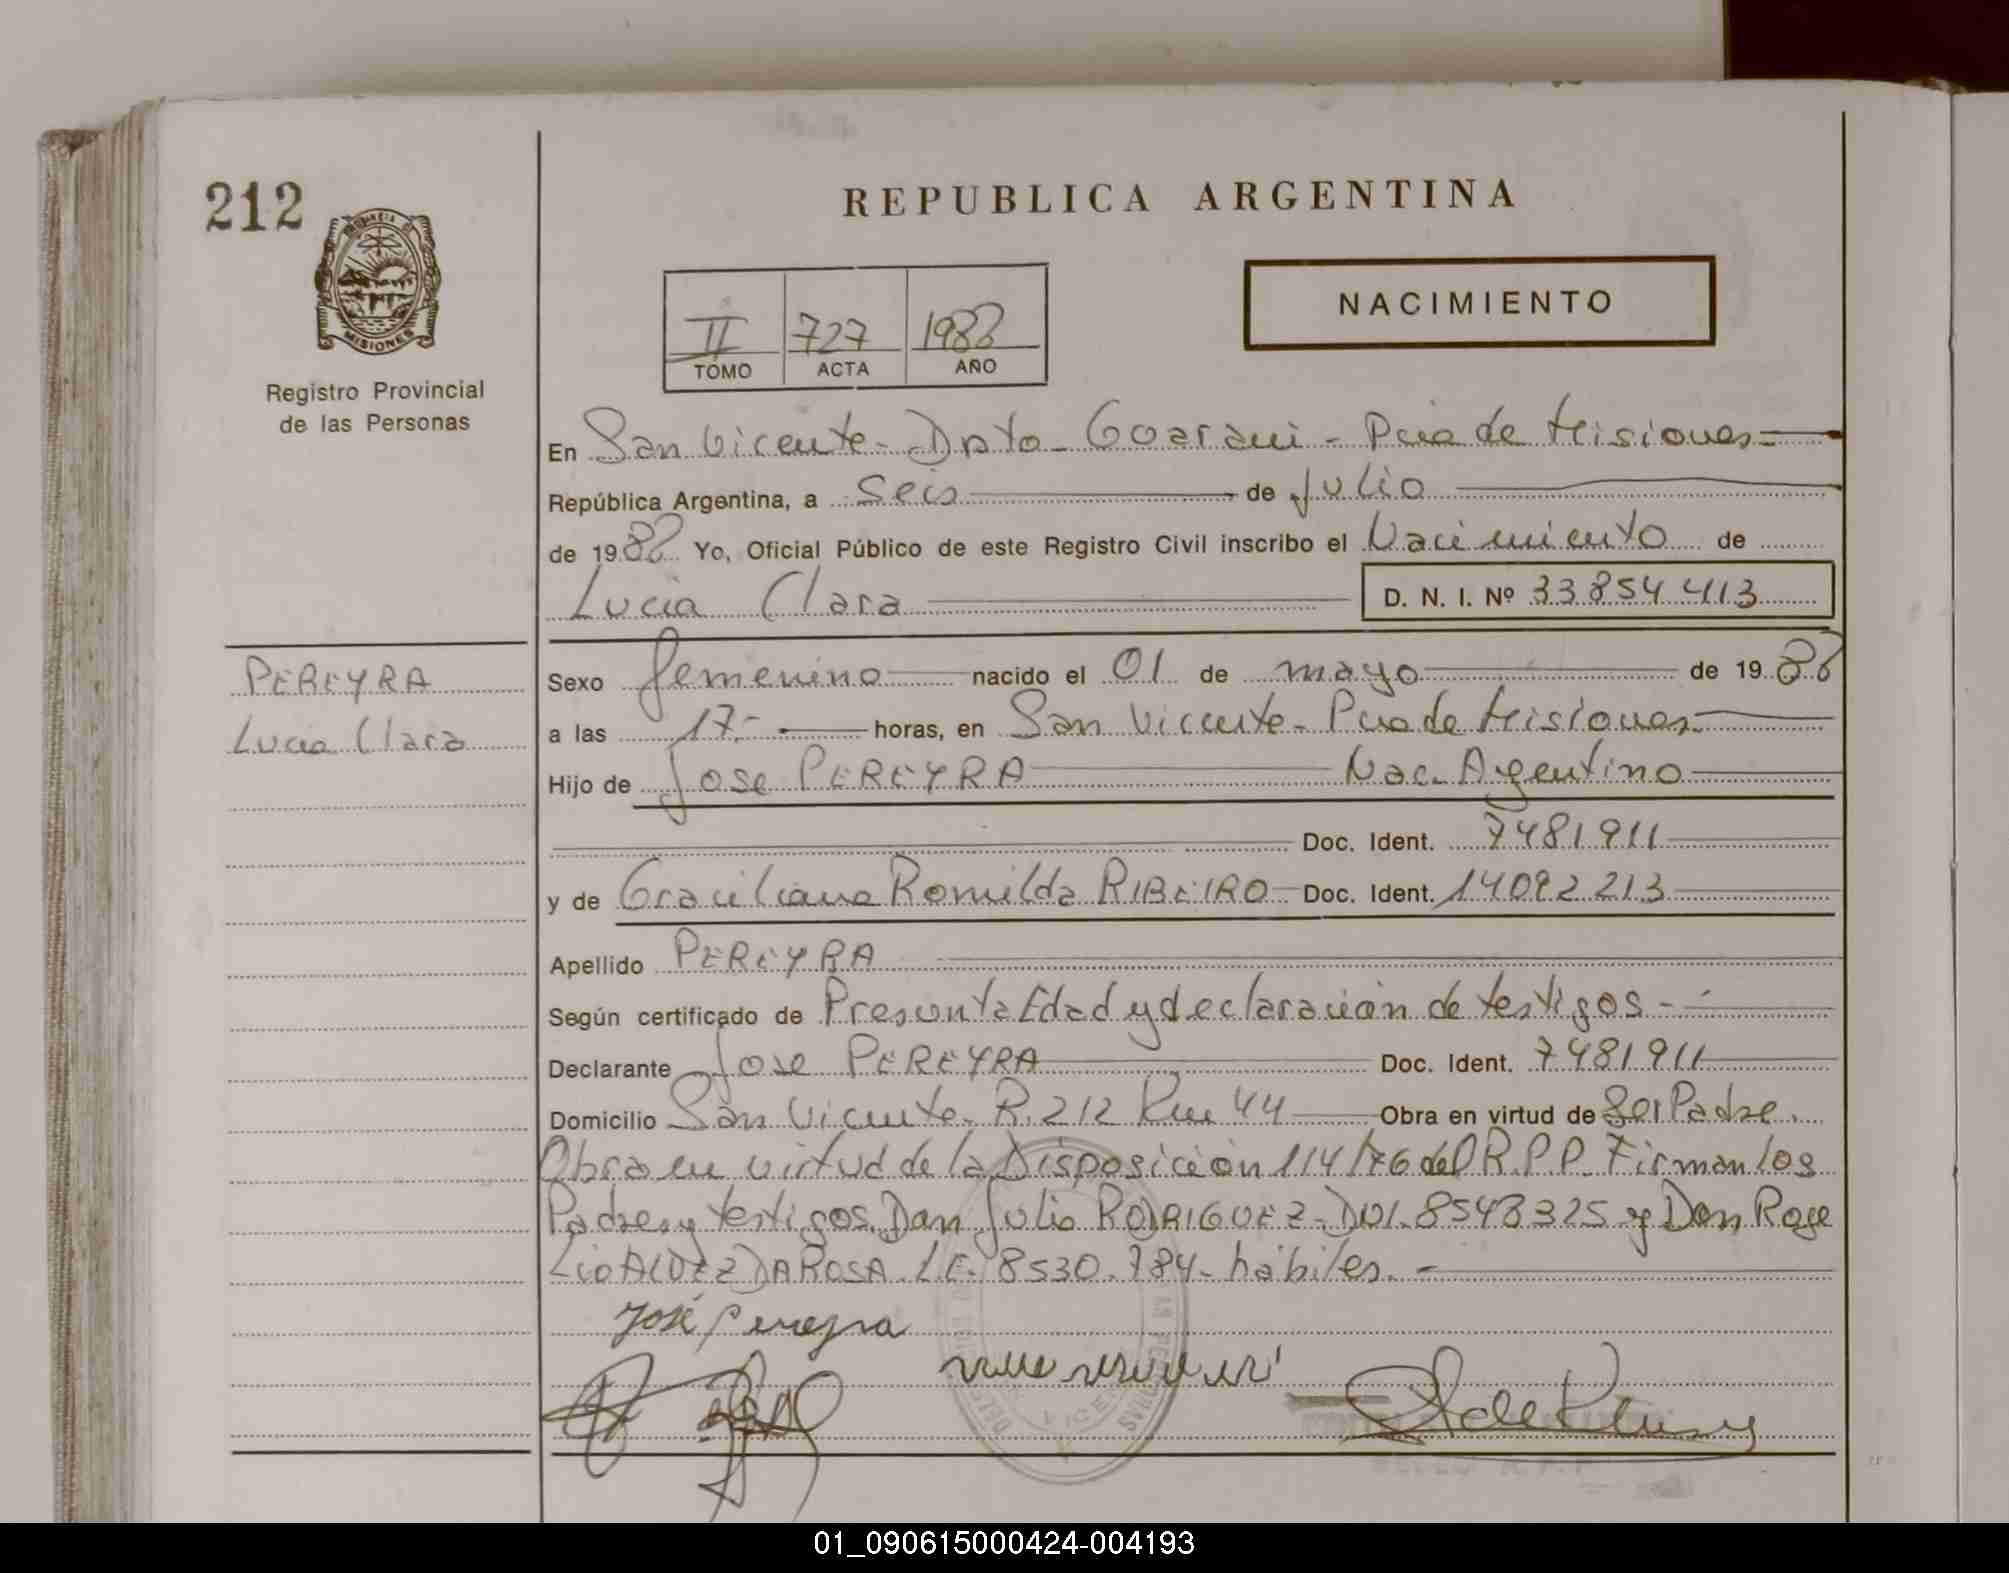 212
REPUBLICA ARGENTINA
PROVINCIA
MISIONES
Registro Provincial
de las Personas
II 727 1988
TOMO ACTA AÑO
NACIMIENTO
En San Vicente - Dpto - Guarani - Pcia de Misiones
República Argentina, a seis de Julio
de 1988 Yo, Oficial Público de este Registro Civil inscribo el Nacimiento de
Lucia Clara D. N. I. Nº 33854413
PEREYRA
Lucia Clara
Sexo femenino nacido el 01 de mayo de 1988
a las 17.- horas, en San Vicente - Pcia de Misiones
Hijo de Jose PEREYRA Nac. Argentino
Doc. Ident. 7481911
y de Graciliana Romilda RIBEIRO Doc. Ident. 14092213
Apellido PEREYRA
Según certificado de Presunta Edad y declaración de testigos -
Declarante Jose PEREYRA Doc. Ident. 7481911
Domicilio San Vicente. R. 212 Km 44 Obra en virtud de Ser Padre.
Obra en virtud de la Disposición 114/76 del R.P.P. Firman los
Padres y testigos. Don Julio RODRIGUEZ - DNI. 8548325 y Don Roge
Lio ALVEZ DA ROSA. L.E. 8530.784 - hábiles. -
José Pereyra
01_090615000424-004193